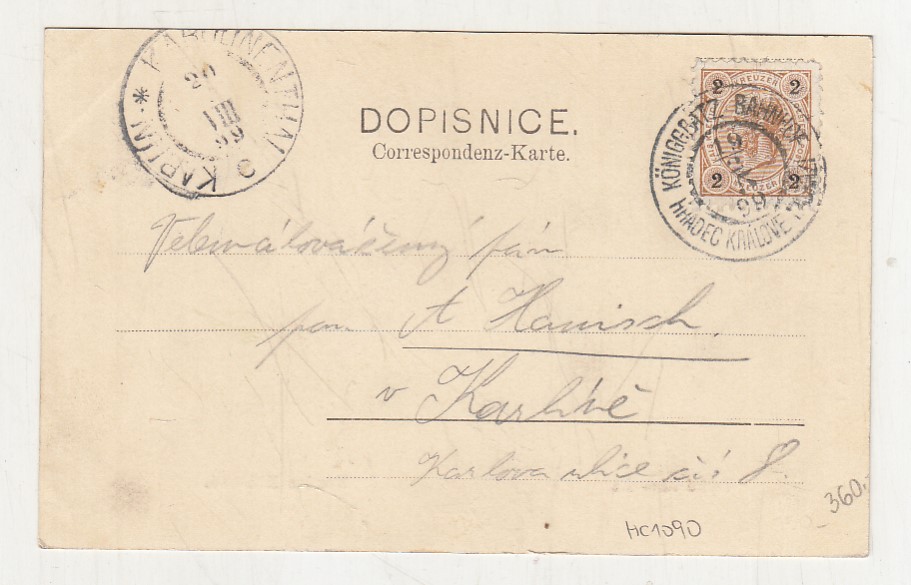 KAROLINENTHAL * KARLIN
20
VIII
99
DOPISNICE.
Correspondenz-Karte.
2 KREUZER 2
2 2
KÖNIGGRÄTZ BAHNHOF
HRADEC KRÁLOVÉ
19
99
pán
pan A Hanisch.
v Karlíně
Karlova ulice čís 8.
360.-
HC1090